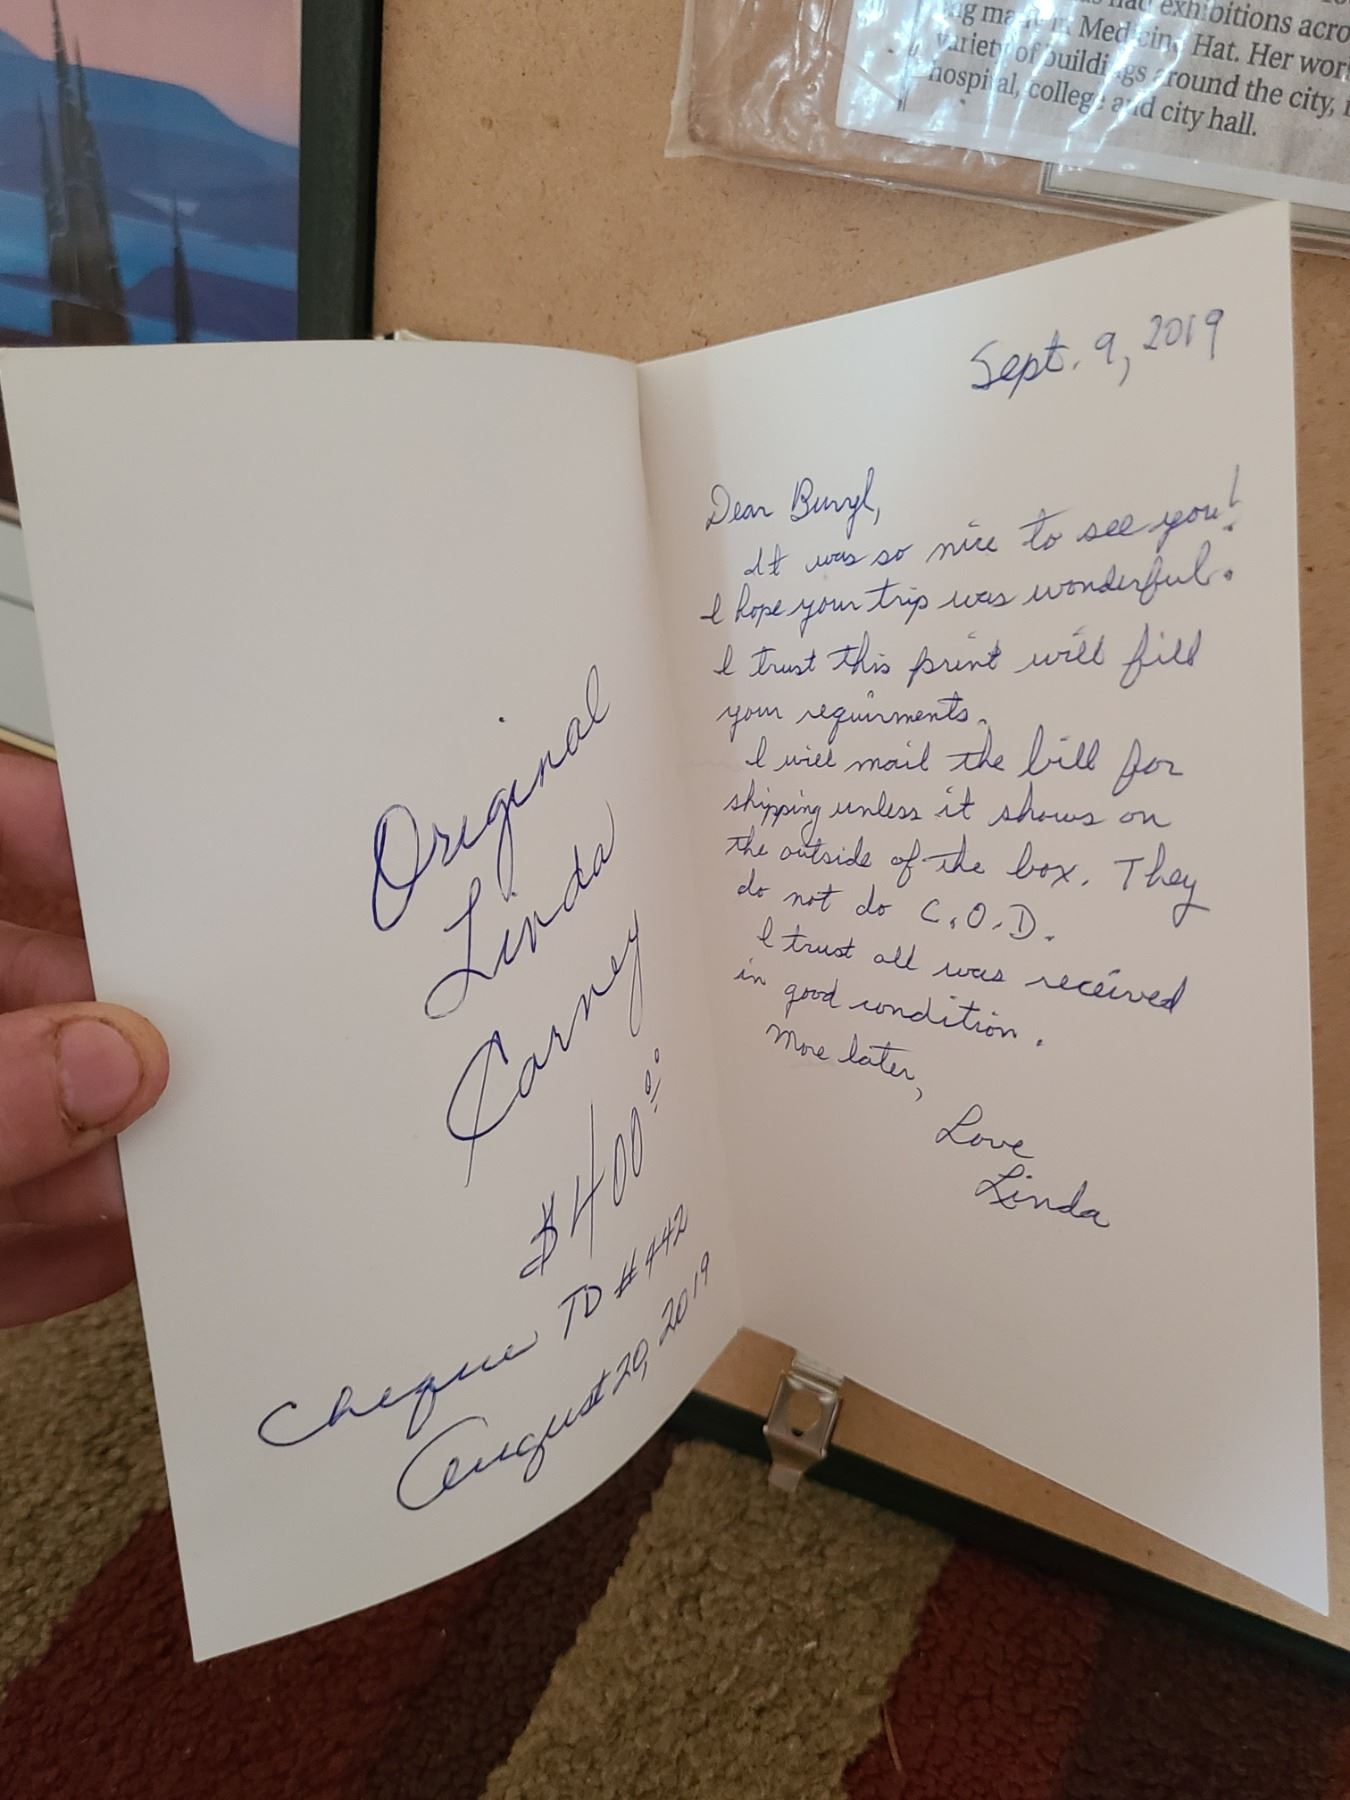 had exhibitions acro
ing made in Medicine Hat. Her wor
variety of buildings around the city,
hospital, college and city hall.
Original
Linda
Carney
$400.00
Cheque TD #442
August 20, 2019
Sept. 9, 2019
Dear Buryl,
It was so nice to see you!
I hope your trip was wonderful.
I trust this print will fill
your requirments.
I will mail the bill for
shipping unless it shows on
the outside of the box. They
do not do C.O.D.
I trust all was received
in good condition.
More later,
Love
Linda